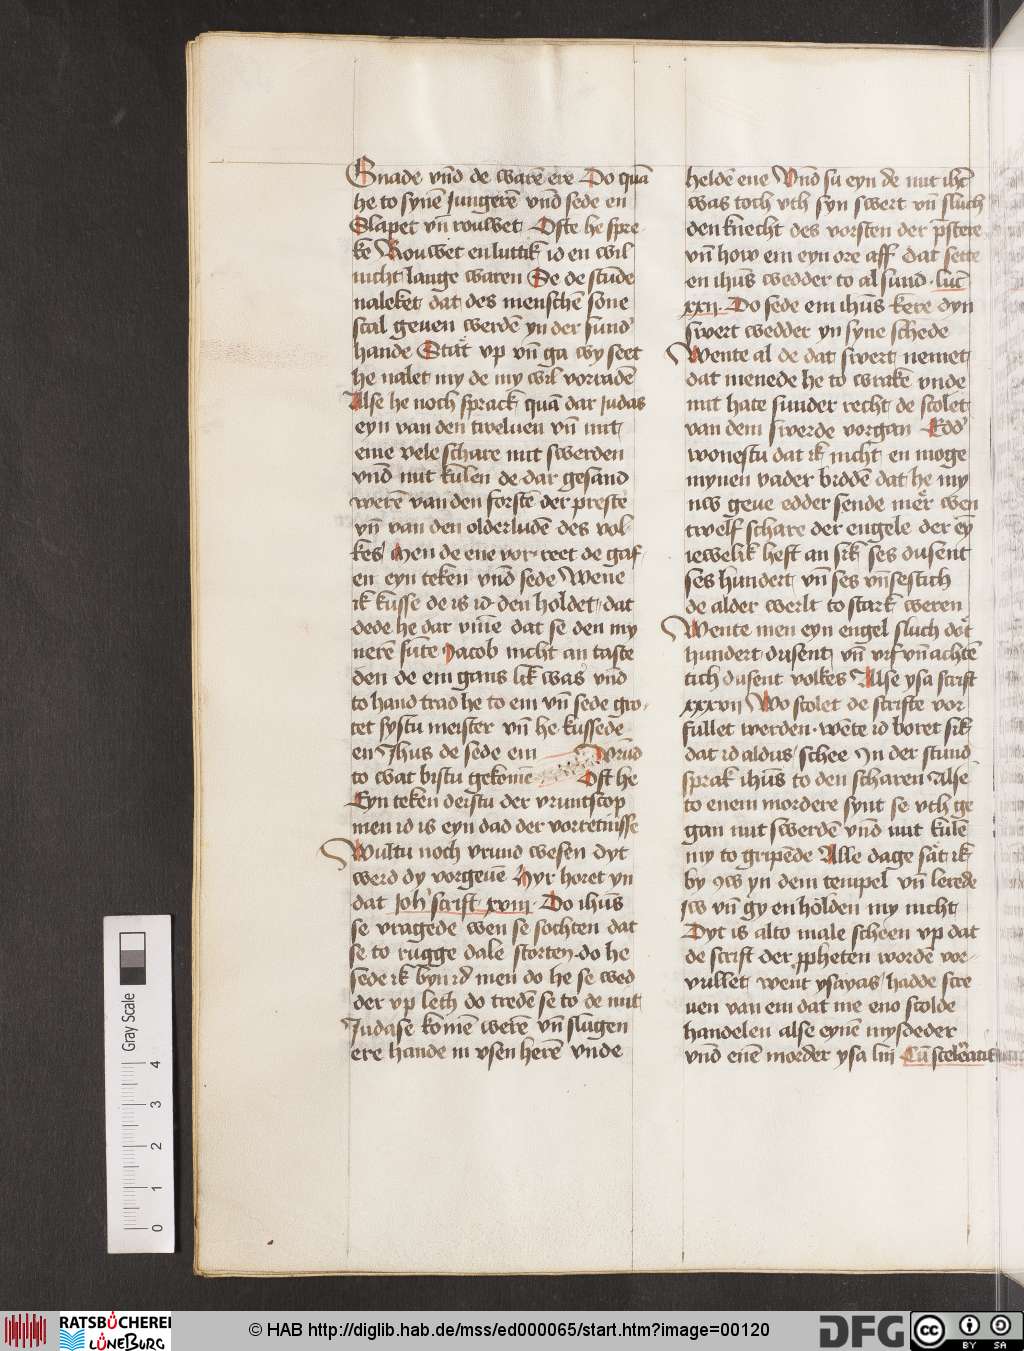 Gnade vn̄d de warē ere Do quā
he to synē Jungerē vn̄d sede en
Slapet vn̄ rouwet Ofte he spre-
ke Rouwet en luttik id en wil
nicht lange waren Se de stūde
naleket dat des menschē sone
scal geuen werdē yn der sund'
hande Stāt vp vn̄ ga wy seet
he nalet my de my wil vorradē
Alse he noch sprack quā dar Judas
eyn van den tweluen vn̄ mit
eme vele schare mit swerden
vn̄d mit kulen de dar gesand
werē van den forstē der preste
vn̄ van den olderludē des vol-
kes Men de ene vor reet de gaf
en eyn teken vn̄d sede Wene
ik kusse de is id den holdet dat
dede he dar vm̄e dat se den my
nerē sūte Jacob nicht an taste
den de em gans lik was vn̄d
to hand trad he to em vn̄ sede gro-
tet systu meister vn̄ he kussede
en Jhūs de sede em Vrūd
to wat bistu gekomē Oft he
Eyn teken deistu der vruntscop
men id is eyn dad der vorretnisse
Wultu noch vrund wesen dyt
werd dy vorgeuē Hyr horet yn
dat Joh' scrift xviii Do ihūs
se vragede wen se sochten dat
se to rugge dale storten do he
sede ik byn id men do he se wed
der vp leth do tredē se to de mit
Judase komē werē vn̄ slugen
ere hande in vsen herē vnde
heldē ene Vn̄d su eyn de mit ihū
was toch vth syn swert vn̄ sluch
den knecht des vorsten der pstere
vn̄ how em eyn ore aff dat sette
en ihūs wedder to al sund luc̄
xxii Do sede em ihūs kere dyn
swert wedder yn syne schede
Wente al de dat swert nemet
dat menede he to wrake vnde
mit hate sunder recht de scolet
van dem swerde vorgan Edd'
wonestu dat ik nicht en moge
mynen vader biddē dat he my
nw geue edder sende mēr wen
twelf schare der engele der eȳ
iewelik heft an sik ses dusent
ses hundert vn̄ ses vn̄ sestich
de alder werlt to stark weren
Wente men eyn engel sluch dōt
hundert dusent vn̄ vif vn̄ achtē
tich dusent volkes Alse ysa scrift
xxxvii Wo scolet de scrifte vor
fullet werden wēte id boret sik
dat id aldus schee Jn der stund
sprak ihūs to den scharen Alse
to enem mordere synt se vth ge
gan mit swerdē vn̄d mit kulē
my to gripēde Alle dage sāt ik
by iw yn dem tempel vn̄ lerede
iw vn̄ gy en hōlden my nicht
Dyt is alto male scheen vp dat
de scrift der ppheten wordē vor-
vullet went ysayas hadde scre
uen van em dat me eno scolde
handelen alse eynē mysdeder
vn̄d enē morder ysa liii Cū sceleratis
0 1 2 3 4 Gray Scale
RATSBÜCHEREI
LÜNEBURG
© HAB http://diglib.hab.de/mss/ed000065/start.htm?image=00120
DFG
cc BY SA